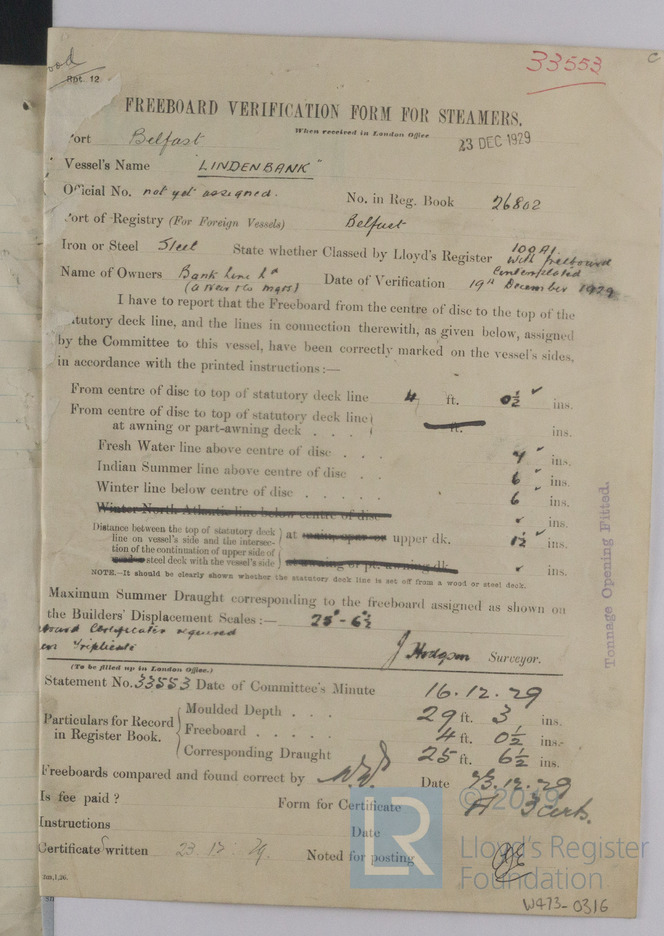 33553
Rpt. 12.
FREEBOARD VERIFICATION FORM FOR STEAMERS.
When received in London Office 23 DEC 1929
Port Belfast
Vessel's Name "LINDENBANK"
Official No. not yet assigned. No. in Reg. Book 26802
Port of Registry (For Foreign Vessels) Belfast
Iron or Steel Steel State whether Classed by Lloyd's Register 100A1. With freeboard Contemplated
Name of Owners Bank Line Ld Date of Verification 19th December 1929
(A Weir & Co Mgrs)
I have to report that the Freeboard from the centre of disc to the top of the
statutory deck line, and the lines in connection therewith, as given below, assigned
by the Committee to this vessel, have been correctly marked on the vessel's sides,
in accordance with the printed instructions:—
From centre of disc to top of statutory deck line 4 ft. 0½ ins.
From centre of disc to top of statutory deck line
at awning or part-awning deck . . . . ft. ins.
Fresh Water line above centre of disc . . . ins.
Indian Summer line above centre of disc . . 6 ins.
Winter line below centre of disc . . . . . . 6 ins.
Winter North Atlantic line below centre of disc ins.
Distance between the top of statutory deck
line on vessel's side and the intersec-
tion of the continuation of upper side of
steel deck with the vessel's side
at upper dk. 1½ ins.
at awning or pt. awning dk. ins.
NOTE.—It should be clearly shown whether the statutory deck line is set off from a wood or steel deck.
Maximum Summer Draught corresponding to the freeboard assigned as shown on
the Builders' Displacement Scales:— 25' - 6½
Certificates required
in Triplicate
J Hodgson Surveyor.
(To be filled up in London Office.)
Statement No. 33553 Date of Committee's Minute 16.12.29
Particulars for Record
in Register Book.
Moulded Depth . . . . 29 ft. 3 ins.
Freeboard . . . . . 4 ft. 0½ ins.
Corresponding Draught 25 ft. 6½ ins.
Freeboards compared and found correct by Date 23.12.29
Is fee paid ? Form for Certificate A 3 certs.
Instructions Date
Certificate written 23.12.29. Noted for posting
Tonnage Opening Fitted.
© 2019
LR
Lloyd's Register
Foundation
W473-0316